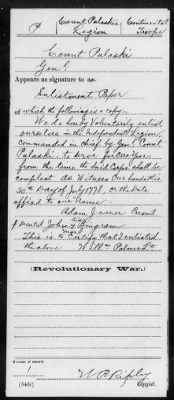 P Count Pulaski's Legion Continental Troops
Count Pulaski
Genl.
Appears as signature to an
Enlistment Paper
of which the following is a copy:
We do hereby Voluntarily enlist
ourselves in the Independent Legion,
Commanded in chief by Genl. Count
Pulaski, to serve for one Year
from the time the said Corps shall be
compleat As Witness Our hands this
30th Day of July 1778, or the Date
affixed to our names
Adam Present
John Ingram
This is to Certify that I enlisted
the above Willm Palmer
(Revolutionary War.)
Number of roll:
1
W. P. Ripley
(545) Copyist.